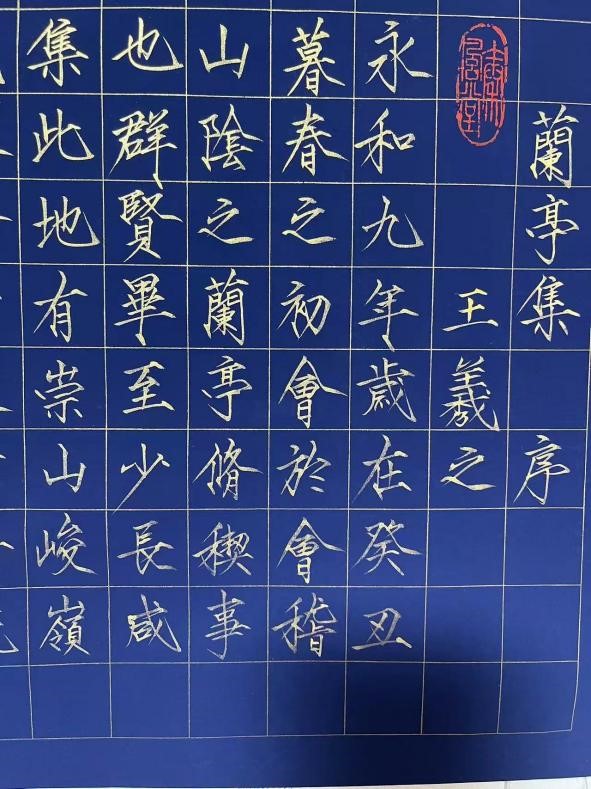 蘭亭集序
王羲之
永和九年歲在癸丑
暮春之初會於會稽
山陰之蘭亭脩稧事
也群賢畢至少長咸
集此地有崇山峻嶺